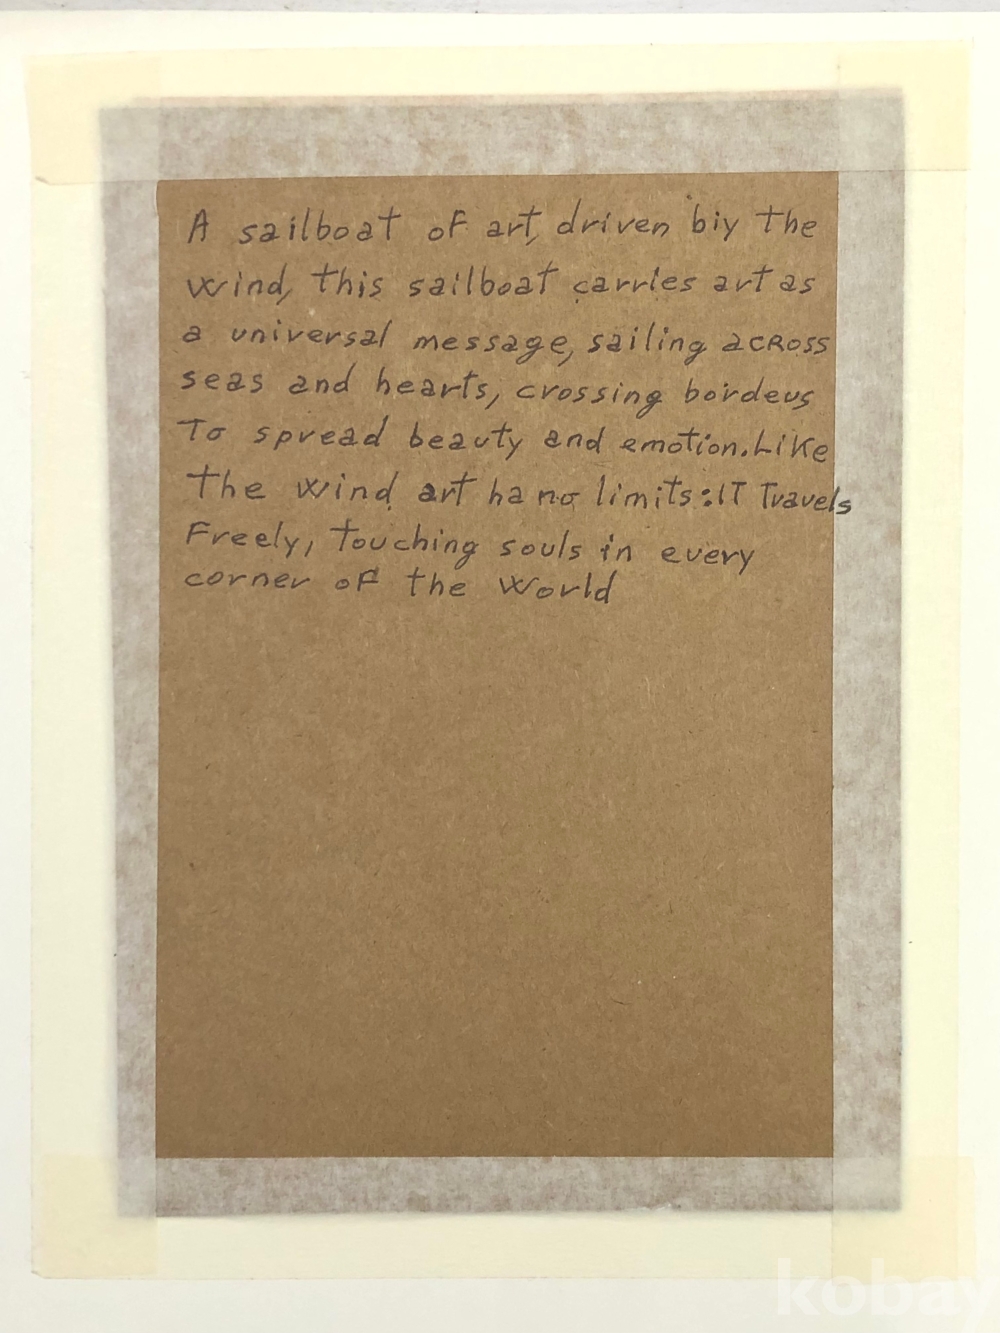 A sailboat of art, driven biy the
wind, this sailboat carries art as
a universal message, sailing acRoss
seas and hearts, crossing borders
To spread beauty and emotion. Like
The wind art ha no limits: IT Travels
Freely, touching souls in every
corner of the World
kobay